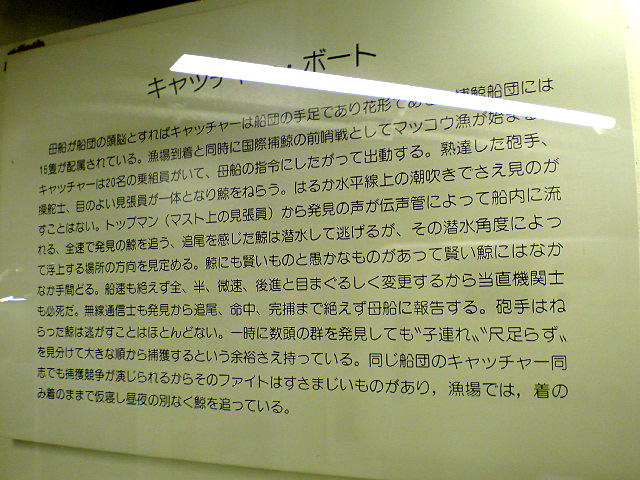 キャッチャー・ボート
母船が船団の頭脳とすればキャッチャーは船団の手足であり花形である 捕鯨船団には
16隻が配属されている。漁場到着と同時に国際捕鯨の前哨戦としてマッコウ漁が始まる
キャッチャーは20名の乗組員がいて、母船の指令にしたがって出動する。熟達した砲手、
操舵士、目のよい見張員が一体となり鯨をねらう。はるか水平線上の潮吹きでさえ見のが
すことはない。トップマン（マスト上の見張員）から発見の声が伝声管によって船内に流
れる、全速で発見の鯨を追う、追尾を感じた鯨は潜水して逃げるが、その潜水角度によっ
て浮上する場所の方向を見定める。鯨にも賢いものと愚かなものがあって賢い鯨にはなか
なか手間どる。船速も絶えず全、半、微速、後進と目まぐるしく変更するから当直機関士
も必死だ。無線通信士も発見から追尾、命中、完捕まで絶えず母船に報告する。砲手はね
らった鯨は逃がすことはほとんどない。一時に数頭の群を発見しても〝子連れ〟〝尺足らず〟
を見分けて大きな順から捕獲するという余裕さえ持っている。同じ船団のキャッチャー同
志でも捕獲競争が演じられるからそのファイトはすさまじいものがあり，漁場では，着の
み着のままで仮寝し昼夜の別なく鯨を追っている。